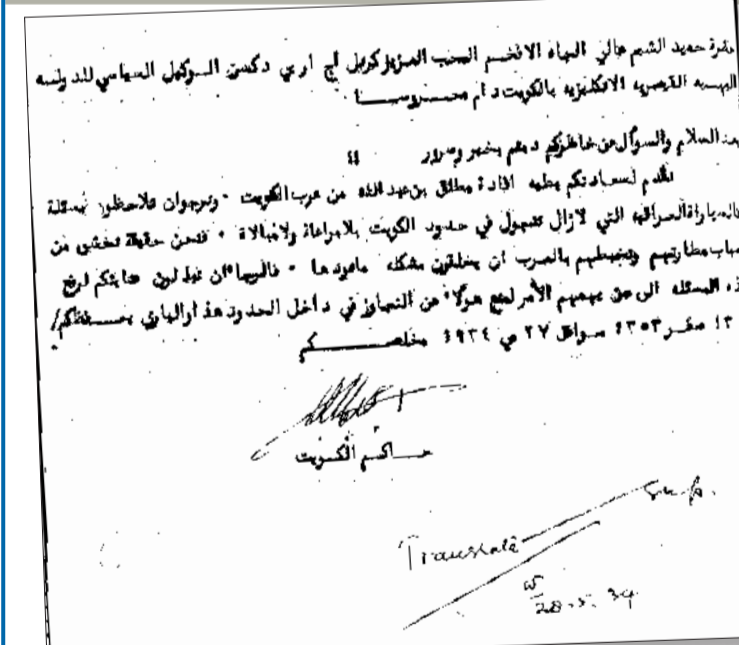 حضرة حميد الشيم عالي الجاه الافخم المحب العزيز كرنل اج ار بي دكسن الوكيل السياسي للدولـه
البهيـه القيصريه الانكليزيه بالكويت دام محـــروســـا
بعد السلام والسوأل عن خاطركم دمتم بخير وسرور
نقدم لسعادتكم بطيه افادة مطلق بن عبد الله من عرب الكويت ٠ ونرجو ان تلاحظون مسئلة
السياراة العراقيه التي لازال تتجول في حدود الكويت بلا مراعاة ولا مبالاة ٠ فنحن حقيقة نخشى من
اسباب مطاردتهم وتخبطهم بالعرب ان يخلقون مشكله ٠ فالرجا ان تبذلون عنايتكم لرفع
هذه المسئله الى من يهمهم الأمر لمنع هولاء عن التجاوز في داخل الحدود هذا والباري يحـــفظكم/
١٣ صفر ١٣٥٣ موافق ٢٧ مي ١٩٣٤ مخلصـــــكم
حـــاكم الكـــويت
Translate
28.5.34